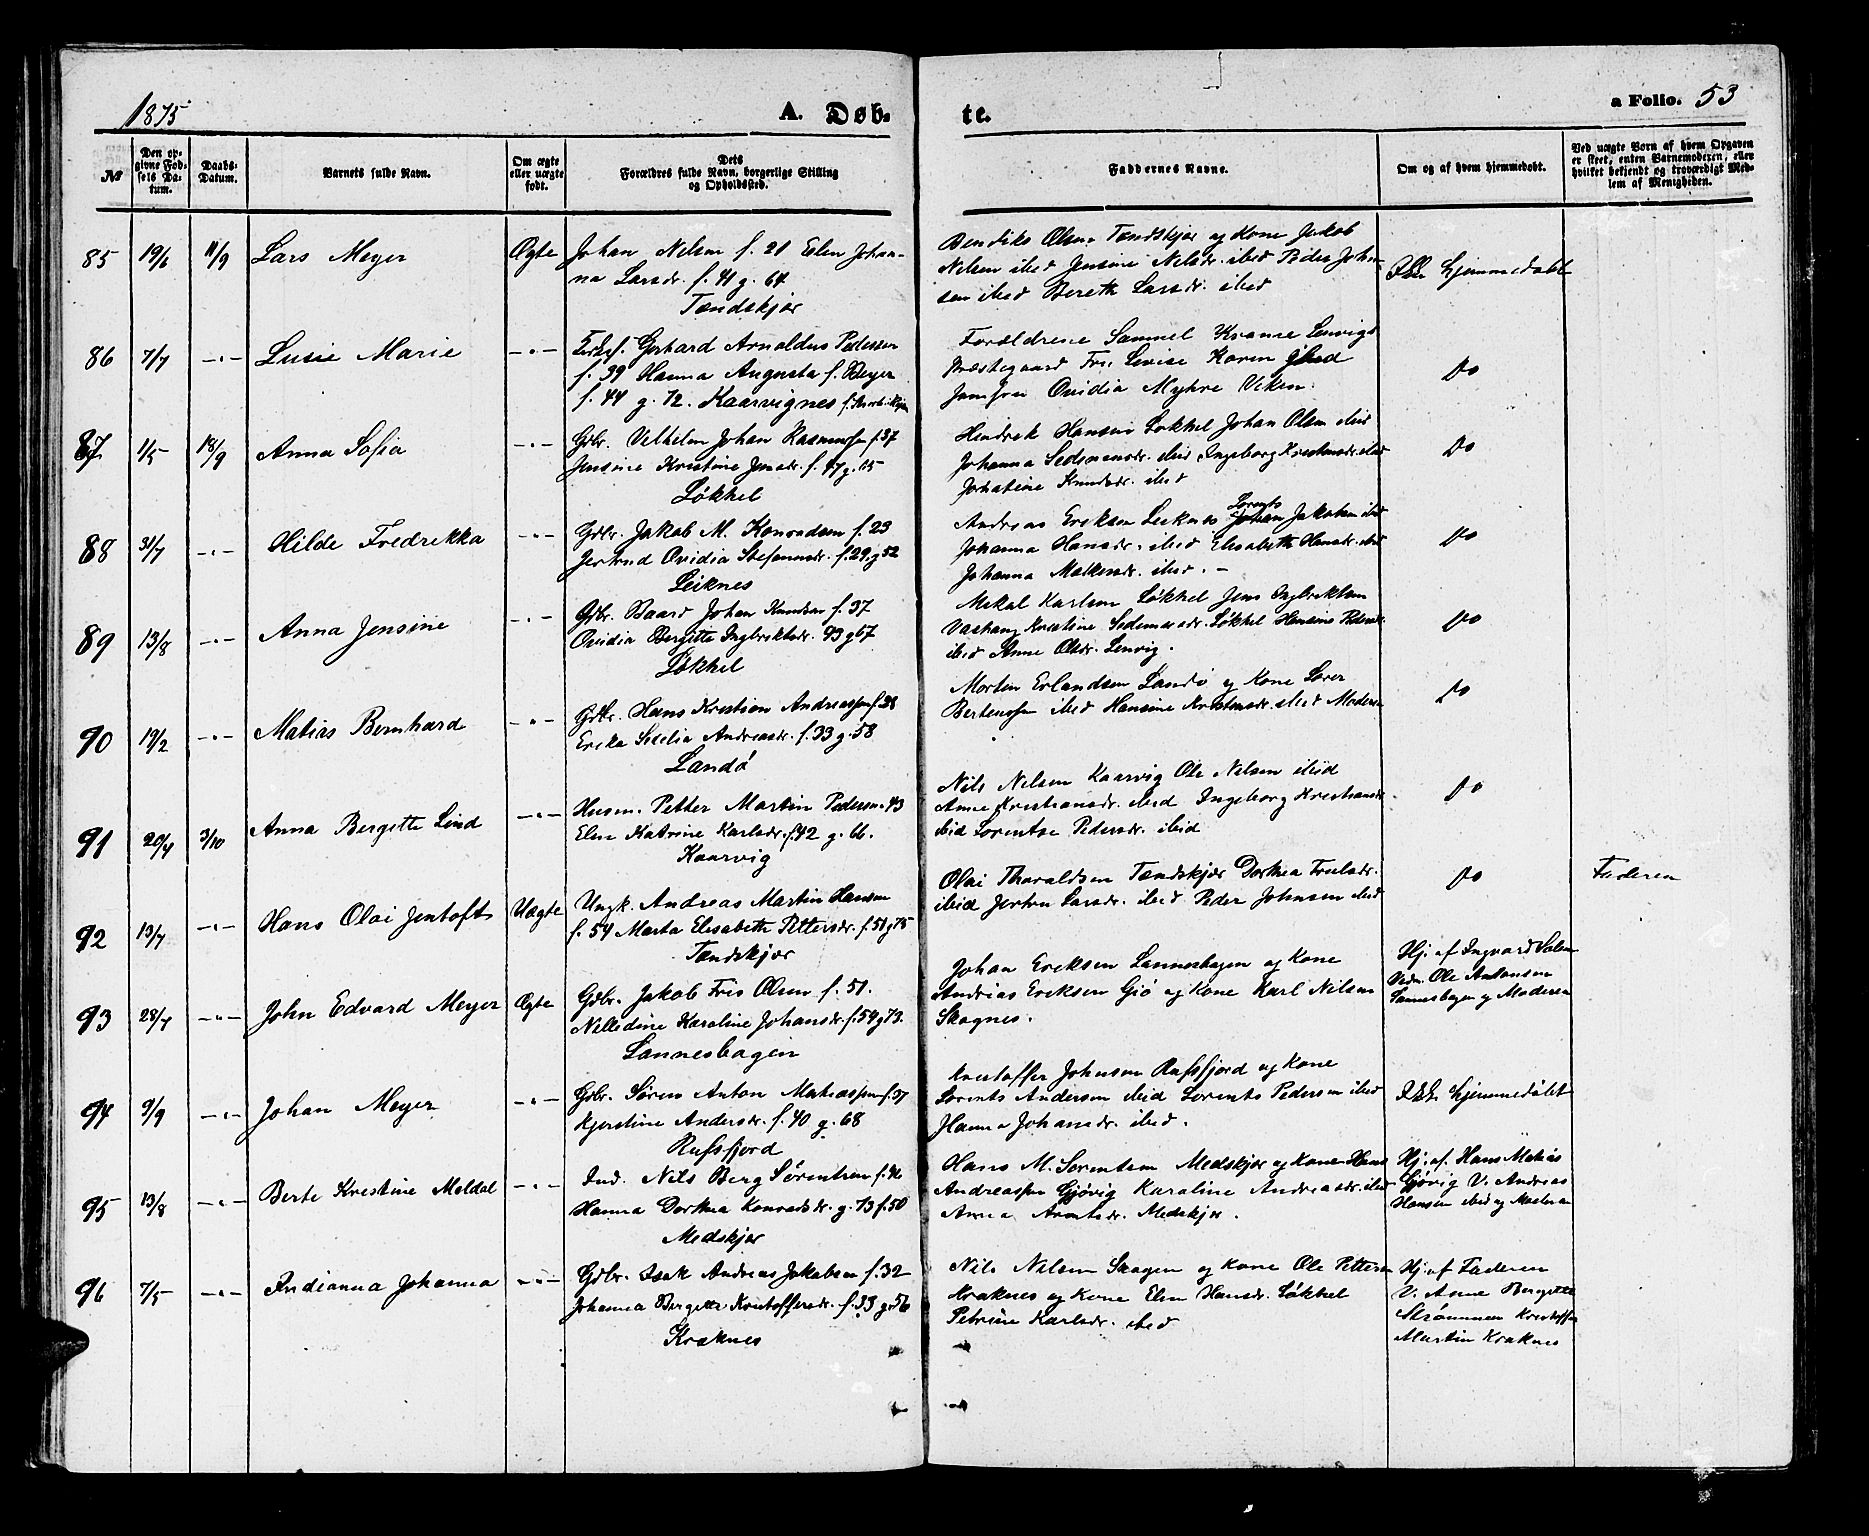 1875
A. Døb-
te.
a Folio. 53
№
Den op-
givne Fød-
sels Da-
tum.
Daabs-
Datum.
Barnets fulde Navn.
Om ægte
eller uægte
født.
Dets
Forældres fulde Navn, borgerlige Stilling
og Opholdssted.
Faddernes Navne.
Om og af hvem hjemmedøbt.
Ved uægte Børn af hvem Opgaven
er skeet, enten Barnemoderen, eller
hvilket bekjendt og troværdigt Med-
lem af Menigheden.
85 19/6 11/9 Lars Meyer Ægte
Johan Nilsen f. 21 Elen Johan-
na Larsdr. f. 41 g. 64
Tendskjær
Bendiks Olsen Tendskjær og Kone Jakob
Nilsen ibid Jensine Nilsdr. ibid Peder John-
sen ibid Bereth Larsdr. ibid
Ikke hjemmedøbt
86 7/7 -"- Lusie Marie -"-
Gerhard Arnoldus Pedersen
f. 39 Hanna Augusta f. Beyer
f. 44 g. 72. Kaarvignes
Forældrene Samuel Kvamse Lenvigs
Præstegaard Frk. Lovise Karen
Ovidia Myhre Viken.
Do
87 1/5 18/9 Anna Sofia -"-
Gdbr. Vilhelm Johan Rasmussen f. 37
Jensine Kristine Jensdr. f. 47 g.
Løkhel
Hendrik Hansen Løkhel Johan Olsen ibid
Johanna ibid Ingeborg Kristensdr. ibid
Knudsdr. ibid
Do
88 31/7 -"- Hilde Fredrikka -"-
Gdbr. Jakob M. Konradsen f. 23
Jertrud Ovidia Stefansdr. f. 29 g 52
Leiknes
Andreas Eriksen Leiknes Lorents Johan Jakobsen ibid
Johanna Hansdr. ibid Elisabeth Hansdr. ibid
Johanna ibid. -
Do
89 13/8 -"- Anna Jensine -"-
Gdbr. Baard Johan Knudsen f. 37
Ovidia Bergitte Ingbrektsdr. 43 g 67
Løkhel
Mikal Karlsen Løkhel Jens Ingbrektsen
Vashaug Kristine Løkhel Hansine Pedersdr.
ibid Anne Olsdr. Lenvig.
Do
90 19/2 -"- Matias Bernhard -"-
Gdbr. Hans Kristian Andreassen f. 28
Erika Sesilia Andreasdr. f. 33 g. 58
Landø
Morten Erlandsen Landø og Kone Sører
Bertensen ibid Hansine Kristensdr. ibid Moderen
Do
91 20/4 3/10 Anna Bergitte Lind -"-
Husm. Petter Martin Pedersen 43
Elen Katrine Karlsdr. f. 42 g. 66.
Kaarvig
Nils Nilsen Kaarvig Ole Nilsen ibid
Anne Kristiansdr. ibid Ingeborg Kristiansdr.
ibid Lorentse Pedersdr. ibid
Do
92 13/7 -"- Hans Olai Jentoft Uægte
Ungk. Andreas Martin Hansen
f. 54 Marta Elisabeth Pettersdr. f. 51 g 75
Tendskjær
Olai Tharaldsen Tendskjær Dorthea
ibid Jertru Larsdr. ibid Peder Johnsen ibid
Do
Faderen
93 28/7 -"- John Edvard Meyer Ægte
Gdbr. Jakob Fris Olsen f. 51.
Nillsdine Karoline Johansdr. f. 54 g 73.
Lannesbagen
Johan Eriksen Lannesbagen og Kone
Andreas Eriksen Gjø og Kone Karl Nilsen
Skognes.
Hj. af Ingvard
Vidn. Ole Antonsen
Lannesbagen og Moderen
94 9/9 -"- Johan Meyer -"-
Gdbr. Sören Anton Matiassen f. 37
Kjerstine Andersdr. f. 40 g. 68
Rufsfjord
Kristoffer Johnsen Rufsfjord og Kone
Lorents Andersen ibid Lorents Pedersen ibid
Hanna Johansdr. ibid.
Ikke hjemmedøbt
95 13/8 -"- Berte Kristine Meldal -"-
Ind. Nils Berg Sørensen f. 46
Hanna Dorthea Konradsdr. g. 73 f. 50
Medskjær
Hans M. Sorentsen Medskjær og Kone Hans
Andreassen Gjøvig Karoline Andreasdr. ibid
Anna Arntsdr. Medskjær.
Hj. af. Hans Matias
Gjøvig V. Andreas
Hansen ibid og Moderen
96 7/5 -"- Indianna Johanna -"-
Gdbr. Isak Andreas Jakobsen f. 32
Johanna Bergitte Kristoffersdr. f. 33 g. 56
Kraknes
Nils Nilsen Skogen og Kone Ole Pettersen
Kraknes og Kone Elen Hansdr. Løkhel
Petrine Karlsdr. ibid
Hj. af Faderen
V. Anne Bergitte
Strømmen Kristoffer
Martin Kraknes